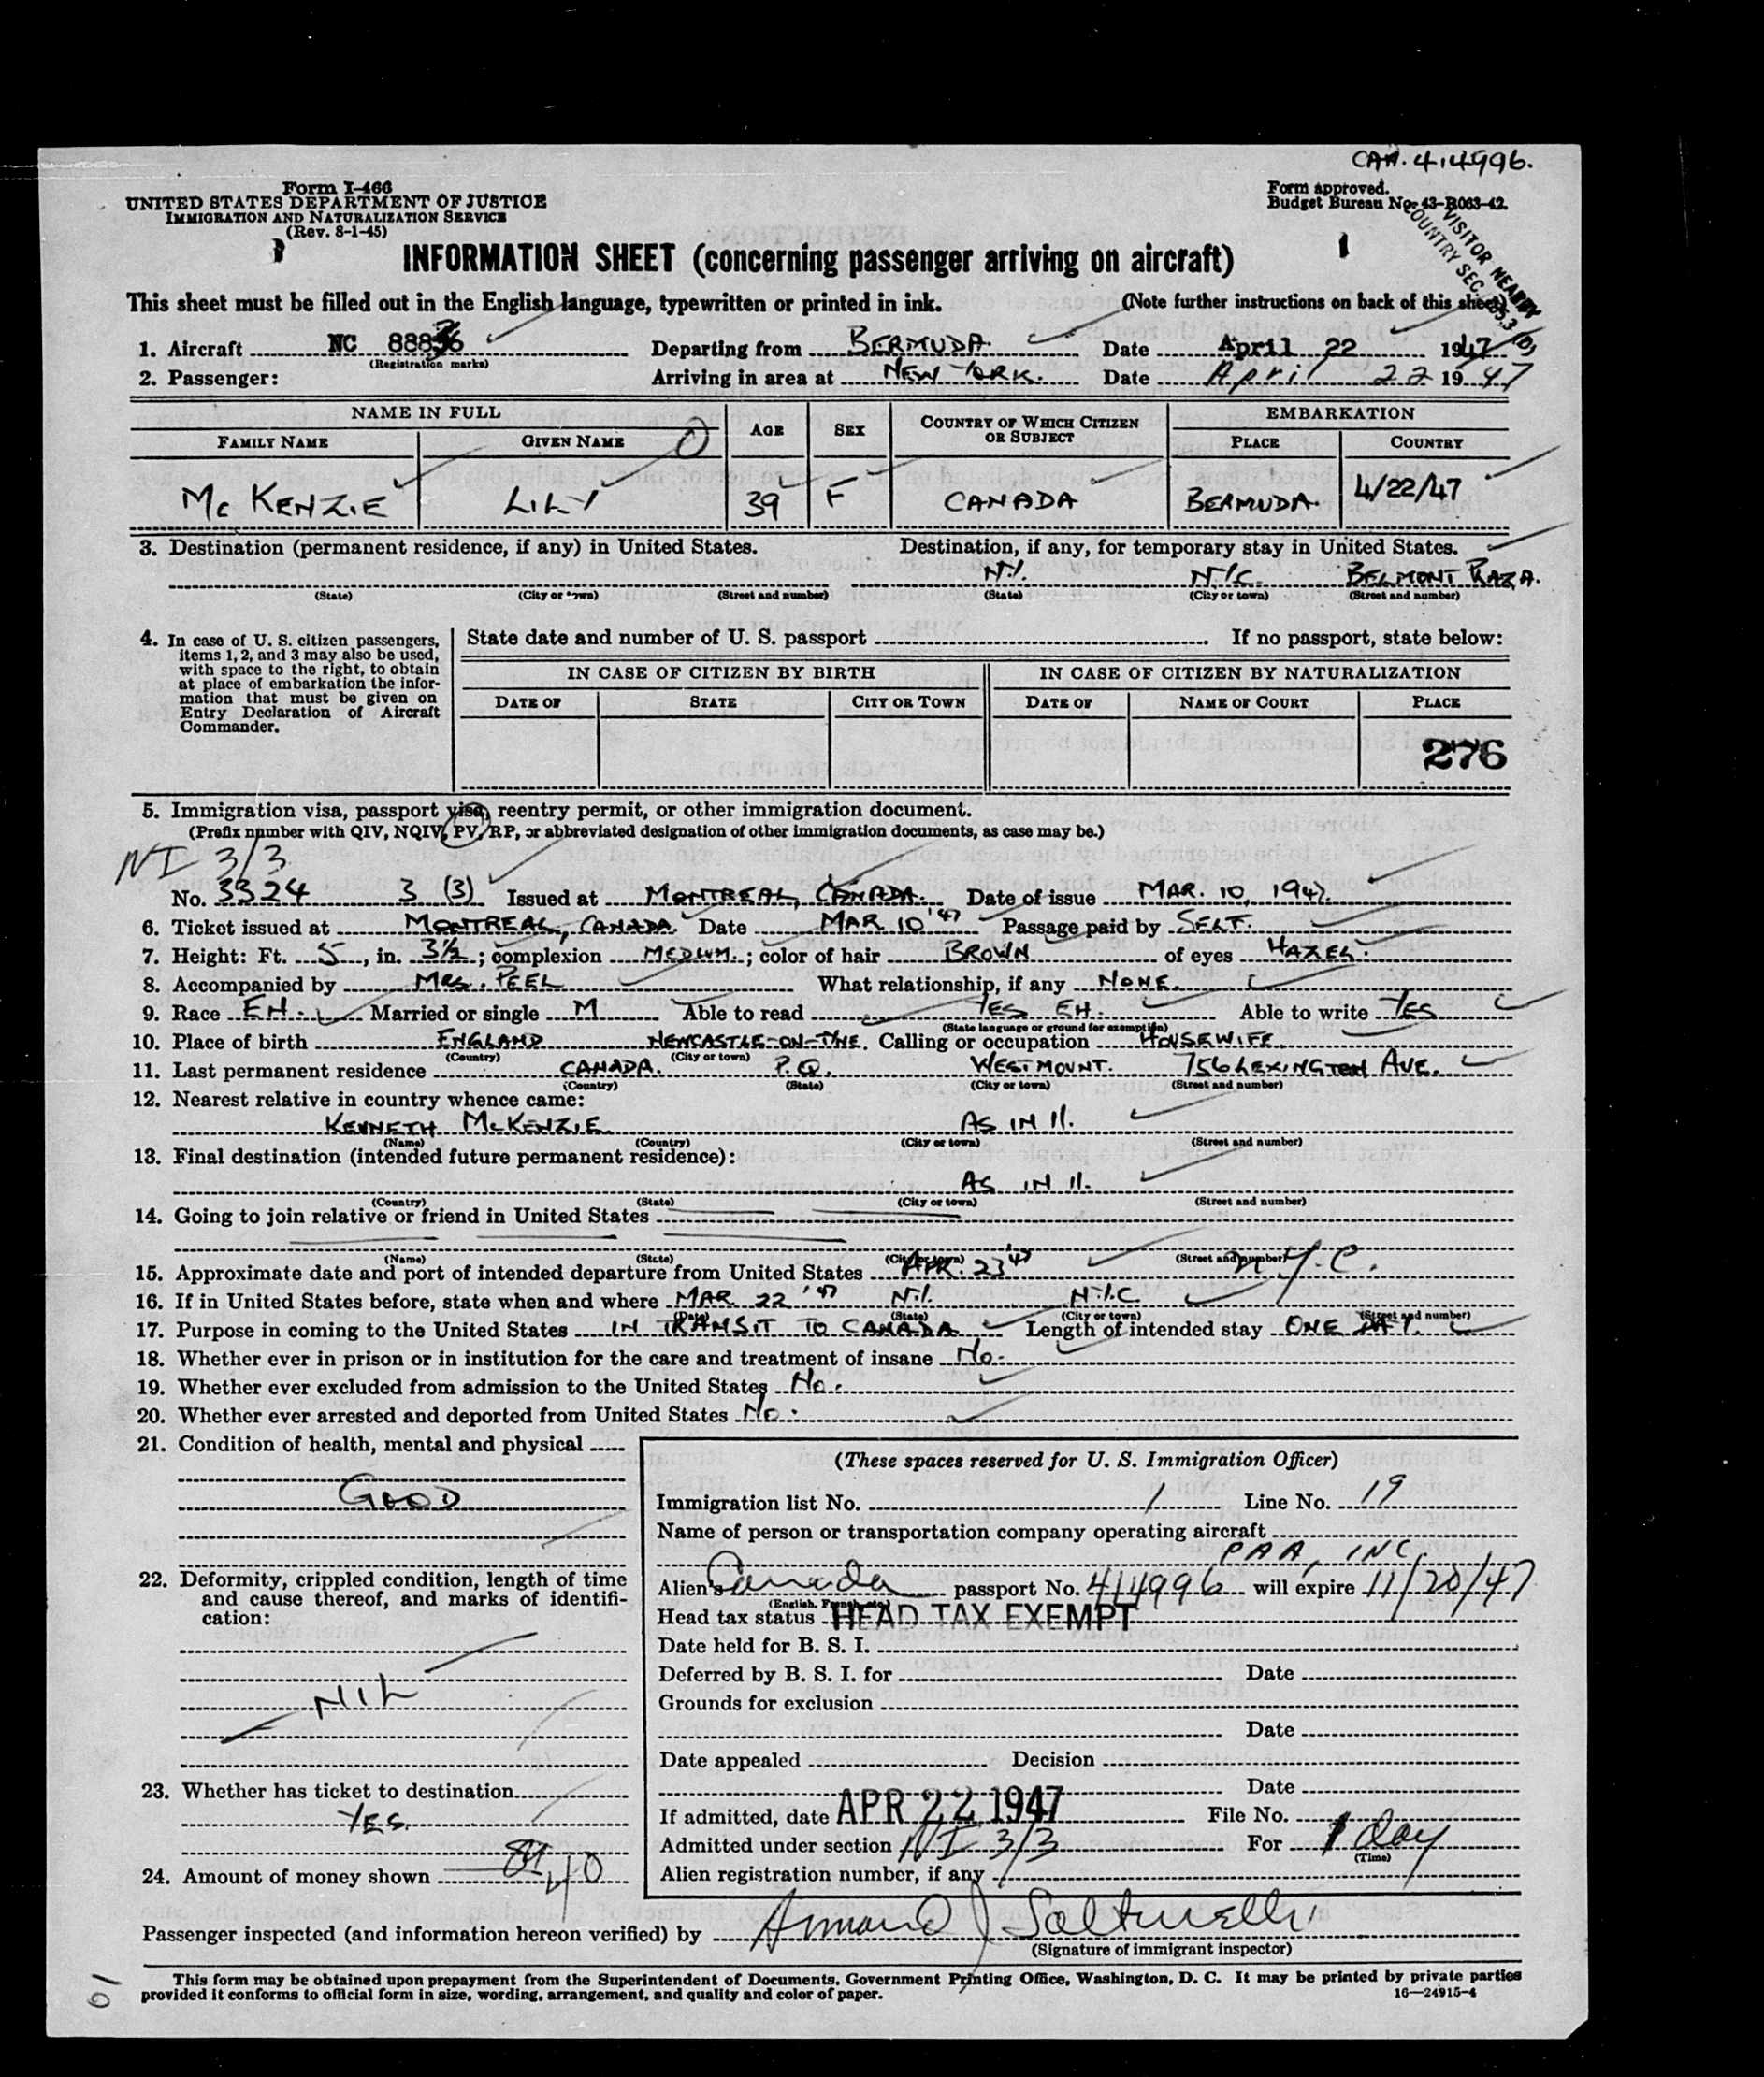 CAN. 414996.
Form I-466
UNITED STATES DEPARTMENT OF JUSTICE
IMMIGRATION AND NATURALIZATION SERVICE
(Rev. 8-1-45)
Form approved.
Budget Bureau No. 43-R063-42.
VISITOR NEARBY
COUNTRY SEC.
INFORMATION SHEET (concerning passenger arriving on aircraft)
This sheet must be filled out in the English language, typewritten or printed in ink. (Note further instructions on back of this sheet)
1. Aircraft NC Departing from BERMUDA Date April 22 1947
(Registration marks)
2. Passenger: Arriving in area at NEW YORK. Date April 22 1947
NAME IN FULL AGE SEX COUNTRY OF WHICH CITIZEN OR SUBJECT EMBARKATION
FAMILY NAME GIVEN NAME PLACE COUNTRY
Mc KENZIE LILY 39 F CANADA BERMUDA 4/22/47
3. Destination (permanent residence, if any) in United States. Destination, if any, for temporary stay in United States.
N.Y. N.Y.C. BELMONT PLAZA.
(State) (City or town) (Street and number) (State) (City or town) (Street and number)
4. In case of U. S. citizen passengers, items 1, 2, and 3 may also be used, with space to the right, to obtain at place of embarkation the information that must be given on Entry Declaration of Aircraft Commander.
State date and number of U. S. passport If no passport, state below:
IN CASE OF CITIZEN BY BIRTH IN CASE OF CITIZEN BY NATURALIZATION
DATE OF STATE CITY OR TOWN DATE OF NAME OF COURT PLACE
276
5. Immigration visa, passport visa, reentry permit, or other immigration document.
(Prefix number with QIV, NQIV, PV, RP, or abbreviated designation of other immigration documents, as case may be.)
NI 3/3
No. 3324 3 (3) Issued at MONTREAL, CANADA. Date of issue MAR. 10, 1947.
6. Ticket issued at MONTREAL, CANADA Date MAR 10 '47 Passage paid by SELF.
7. Height: Ft. 5, in. 3½; complexion MEDIUM.; color of hair BROWN of eyes HAZEL.
8. Accompanied by MRS. PEEL What relationship, if any NONE.
9. Race EH. Married or single M Able to read YES EH. Able to write YES
(State language or ground for exemption)
10. Place of birth ENGLAND NEWCASTLE-ON-TYNE. Calling or occupation HOUSEWIFE
(Country) (City or town)
11. Last permanent residence CANADA. P.Q. WESTMOUNT. 756 LEXINGTON AVE.
(Country) (State) (City or town) (Street and number)
12. Nearest relative in country whence came:
KENNETH McKENZIE AS IN 11.
(Name) (Country) (City or town) (Street and number)
13. Final destination (intended future permanent residence):
AS IN 11.
(Country) (State) (City or town) (Street and number)
14. Going to join relative or friend in United States
(Name) (State) (City or town) (Street and number)
15. Approximate date and port of intended departure from United States APR. 23 '47 N.Y.C.
16. If in United States before, state when and where MAR 22 '47 N.Y. N.Y.C
(Date) (State) (City or town) (Street and number)
17. Purpose in coming to the United States IN TRANSIT TO CANADA Length of intended stay ONE DAY.
18. Whether ever in prison or in institution for the care and treatment of insane No.
19. Whether ever excluded from admission to the United States No.
20. Whether ever arrested and deported from United States No.
21. Condition of health, mental and physical
GOOD
22. Deformity, crippled condition, length of time and cause thereof, and marks of identification:
NIL
23. Whether has ticket to destination
YES.
24. Amount of money shown
(These spaces reserved for U. S. Immigration Officer)
Immigration list No. 1 Line No. 19
Name of person or transportation company operating aircraft
PAA, INC
Alien's Canada passport No. 414996 will expire 11/20/47
(English, French, etc.)
Head tax status HEAD TAX EXEMPT
Date held for B. S. I.
Deferred by B. S. I. for Date
Grounds for exclusion
Date
Date appealed Decision
Date
If admitted, date APR 22 1947 File No.
Admitted under section NI 3/3 For 1 day
(Time)
Alien registration number, if any
Passenger inspected (and information hereon verified) by Armand J
(Signature of immigrant inspector)
This form may be obtained upon prepayment from the Superintendent of Documents, Government Printing Office, Washington, D. C. It may be printed by private parties
provided it conforms to official form in size, wording, arrangement, and quality and color of paper.
16—24915-4
19